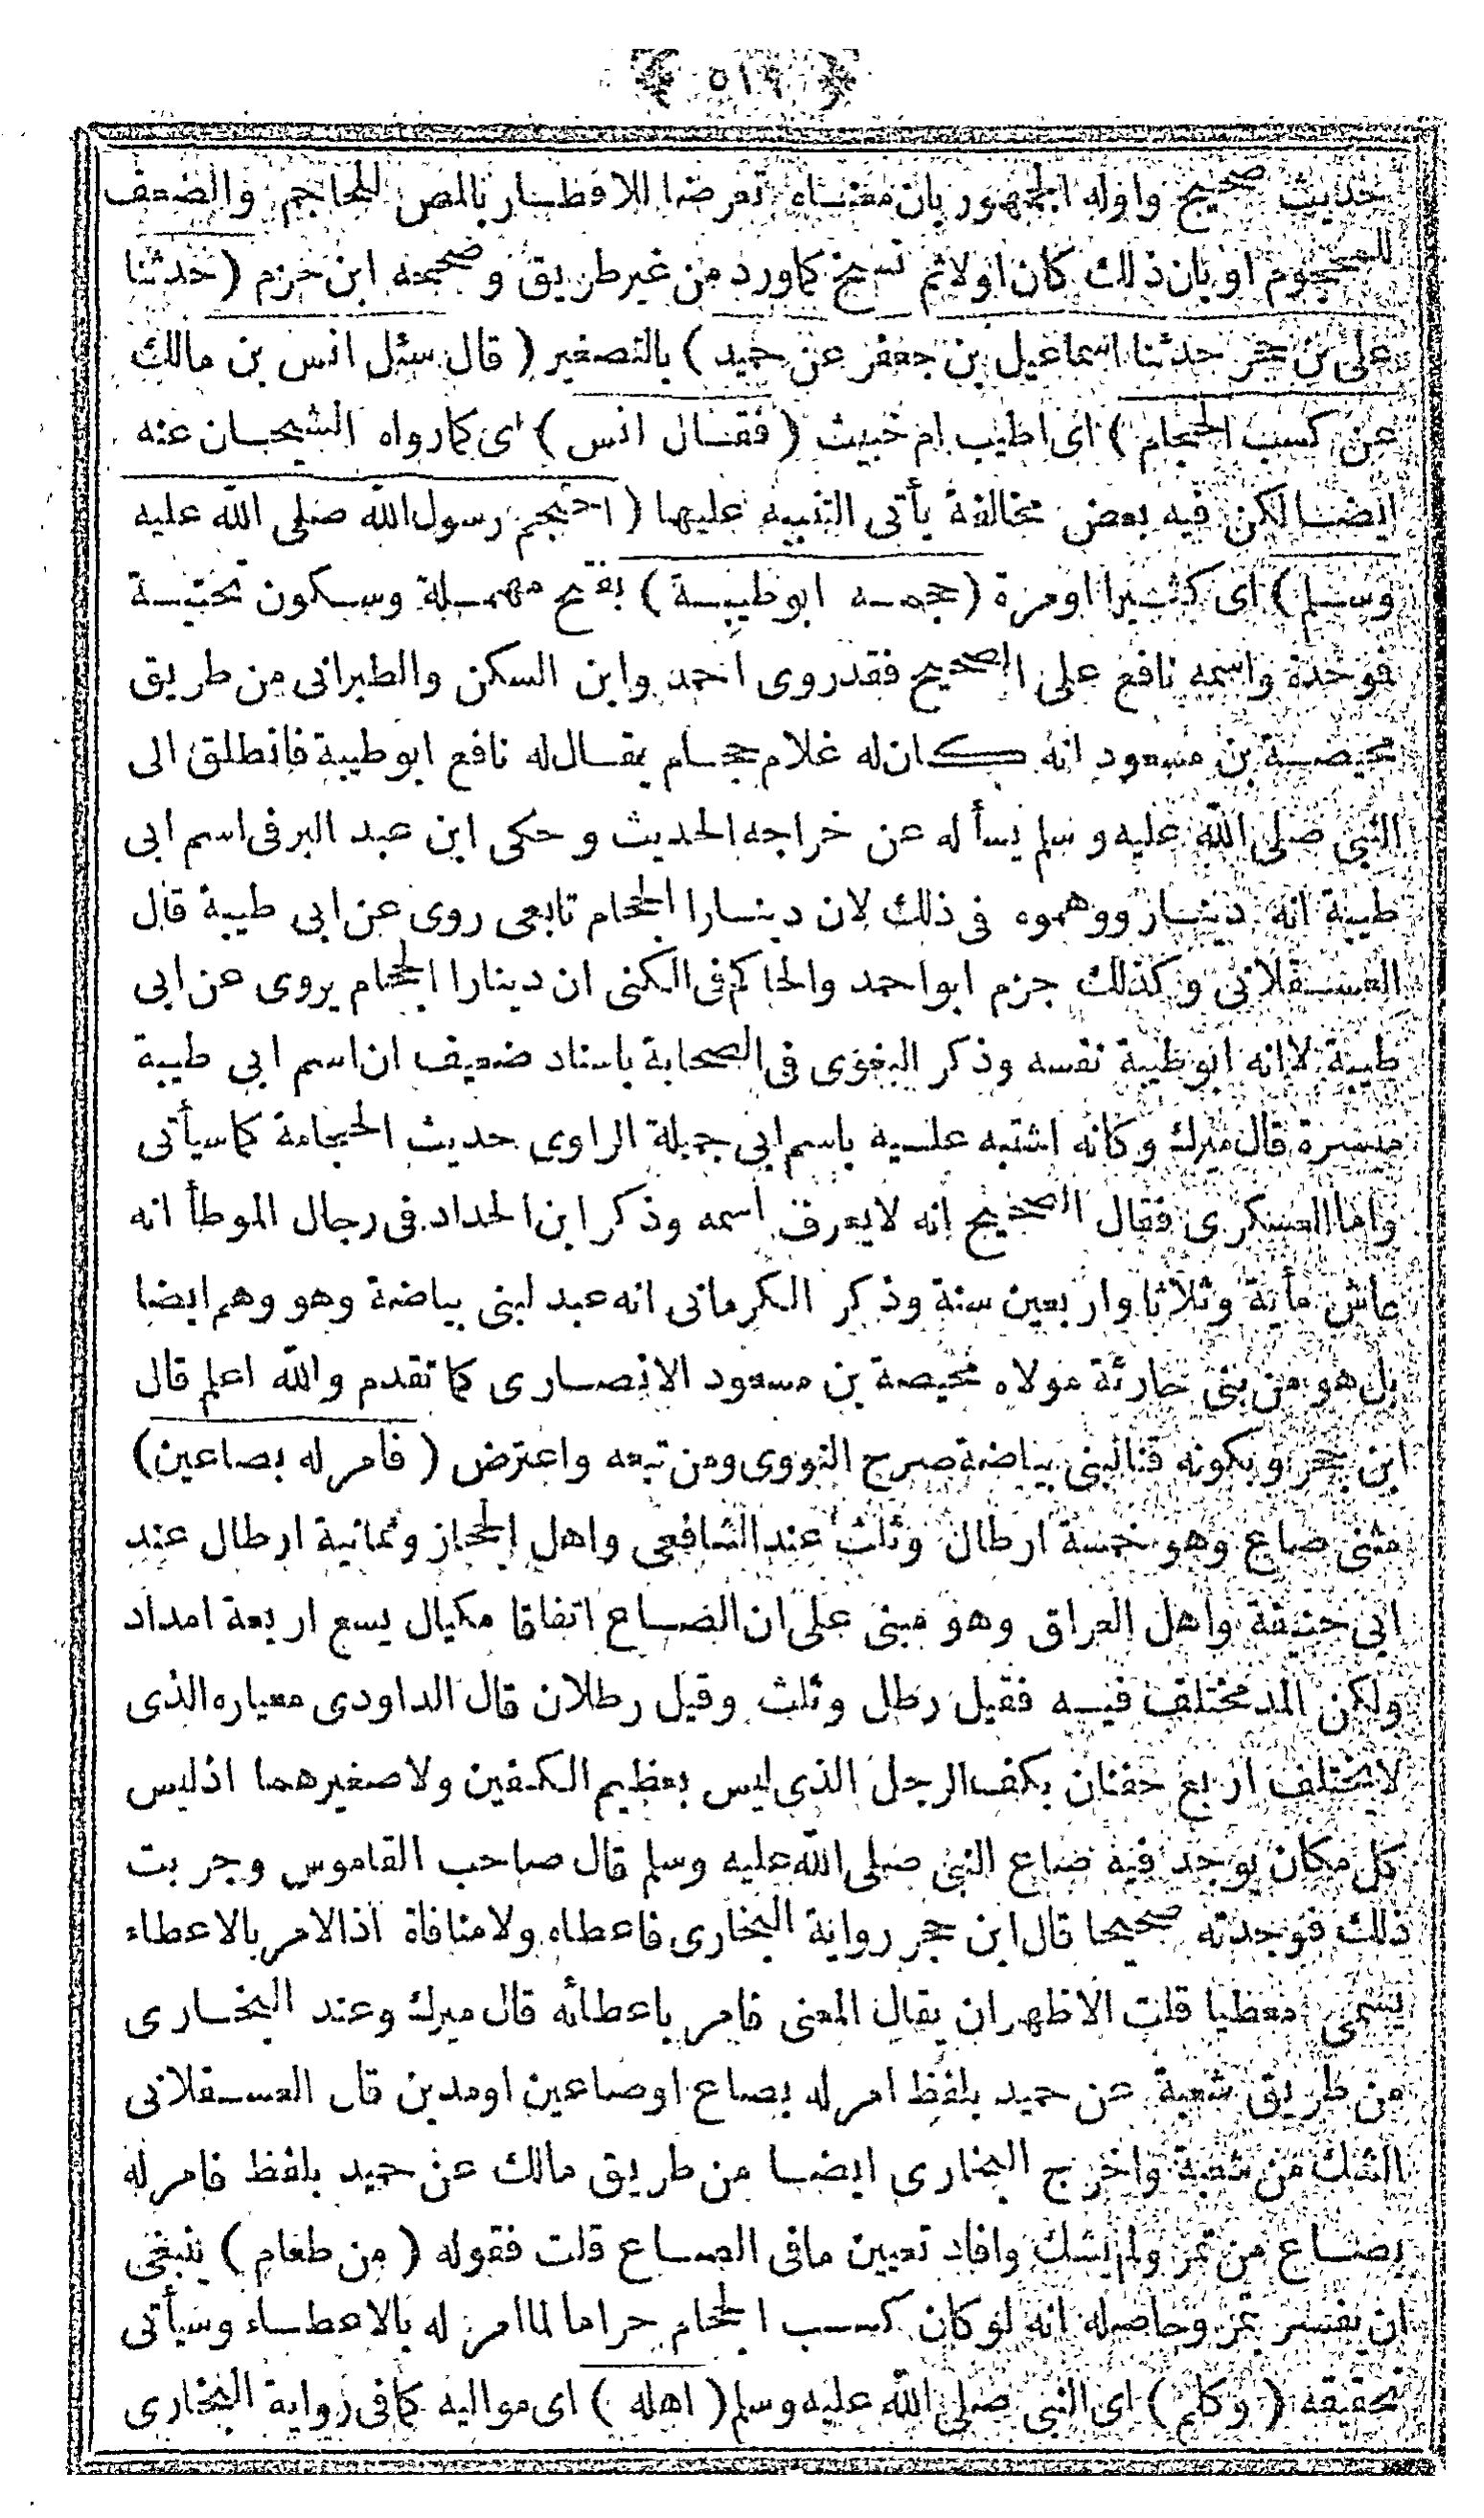 ﴿ ٥١٩ ﴾
حديث صحيح واوله الجمهور بان معناه تعرضا للافطار بالمص للحاجم والضعف
للمحجوم او بان ذلك كان اولا ثم نسخ كما ورد من غير طريق وصححه ابن حزم (حدثنا
على بن حجر حدثنا اسماعيل بن جعفر عن حميد) بالتصغير (قال سئل انس بن مالك
عن كسب الحجام) اى اطيب ام خبيث (فقال انس) اى كما رواه الشيخان عنه
ايضا لكن فيه بعض مخالفة يأتى التنبيه عليها (احتجم رسول الله صلى الله عليه
وسلم) اى كثيرا او مرة (حجمه ابو طيبة) بفتح مهملة وسكون تحتية
فوحدة واسمه نافع على الصحيح فقد روى احمد وابن السكن والطبرانى من طريق
محيصة بن مسعود انه كان له غلام حجام يقال له نافع ابو طيبة فانطلق الى
النبى صلى الله عليه وسلم يسأله عن خراجه الحديث وحكى ابن عبد البر فى اسم ابى
طيبة انه دينار ووهموه فى ذلك لان دينارا الحجام تابعى روى عن ابى طيبة قال
العسقلانى وكذلك جزم ابو احمد والحاكم فى الكنى ان دينارا الحجام يروى عن ابى
طيبة لا انه ابو طيبة نفسه وذكر البغوى فى الصحابة باسناد ضعيف ان اسم ابى طيبة
ميسرة قال ميرك وكانه اشتبه عليه باسم ابى جميلة الراوى حديث الحجامة كما سيأتى
واما العسكرى فقال الصحيح انه لا يعرف اسمه وذكر ابن الحداد فى رجال الموطأ انه
عاش مأية وثلاثا واربعين سنة وذكر الكرمانى انه عبد لبنى بياضة وهو وهم ايضا
بل هو من بنى حارثة مولاه محيصة بن مسعود الانصارى كما تقدم والله اعلم قال
ابن حجر وبكونه قنا لبنى بياضة صرح النووى ومن تبعه واعترض (فامر له بصاعين)
مثنى صاع وهو خمسة ارطال وثلث عند الشافعى واهل الحجاز وثمانية ارطال عند
ابى حنيفة واهل العراق وهو مبنى على ان الصاع اتفاقا مكيال يسع اربعة امداد
ولكن المد مختلف فيه فقيل رطل وثلث وقيل رطلان قال الداودى معياره الذى
لا يختلف اربع حفنان بكف الرجل الذى ليس بعظيم الكفين ولا صغيرهما اذ ليس
كل مكان يوجد فيه صاع النبى صلى الله عليه وسلم قال صاحب القاموس وجربت
ذلك فوجدته صحيحا قال ابن حجر رواية البخارى فاعطاه ولا منافاة اذ الامر بالاعطاء
يسمى معطيا قلت الاظهر ان يقال المعنى فامر باعطائه قال ميرك وعند البخارى
من طريق شعبة عن حميد بلفظ امر له بصاع او صاعين او مدين قال العسقلانى
الشك من شعبة واخرج البخارى ايضا من طريق مالك عن حميد بلفظ فامر له
بصاع من تمر ولم يشك وافاد تعيين ما فى الصاع قلت فقوله (من طعام) ينبغى
ان يفسر بتمر وحاصله انه لو كان كسب الحجام حراما لما امر له بالاعطاء وسيأتى
تحقيقه (وكلم) اى النبى صلى الله عليه وسلم (اهله) اى مواليه كما فى رواية البخارى